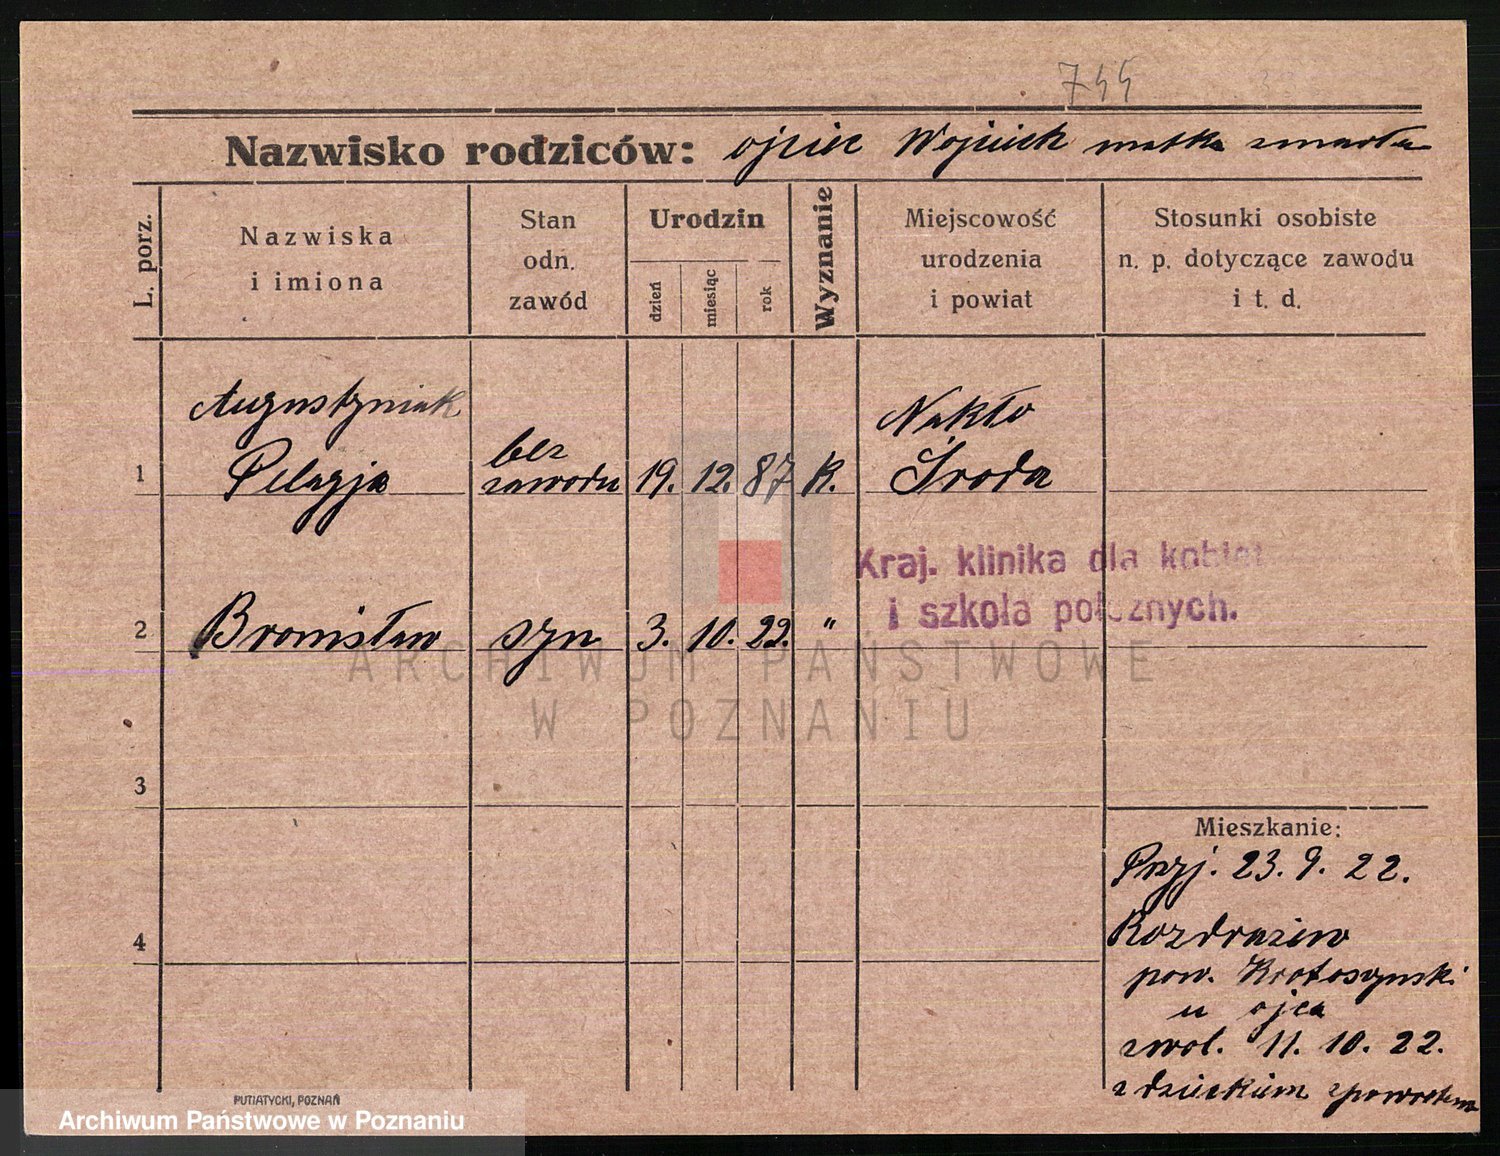 744
Nazwisko rodziców: ojciec Wojciech matka zmarła
L. porz.
Nazwiska
i imiona
Stan
odn.
zawód
Urodzin
dzień
miesiąc
rok
Wyznanie
Miejscowość
urodzenia
i powiat
Stosunki osobiste
n. p. dotyczące zawodu
i t. d.
Augustyniak
Pelagja
bez
zawodu
1
19. 12. 87 K.
Nakło
Środa
Kraj. klinika dla kobiet
i szkoła położnych.
2 Bronisław syn 3. 10. 22. "
ARCHIWUM PAŃSTWOWE
W POZNANIU
3
Mieszkanie:
Przj. 23. 9. 22.
4
Rozdrażew
pow. Krotoszynski
u ojca
zwol. 11. 10. 22.
z dzieckiem zpowrotem
PUTIATYCKI, POZNAŃ
Archiwum Państwowe w Poznaniu